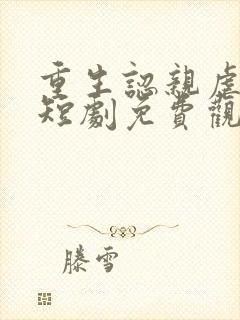 重生認親虐
短劇免費觀
滕雪